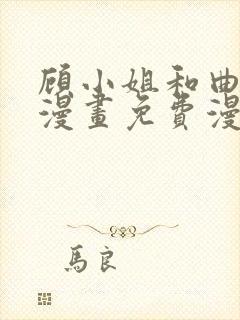 顾小姐和曲
漫畫免費漫
馬良